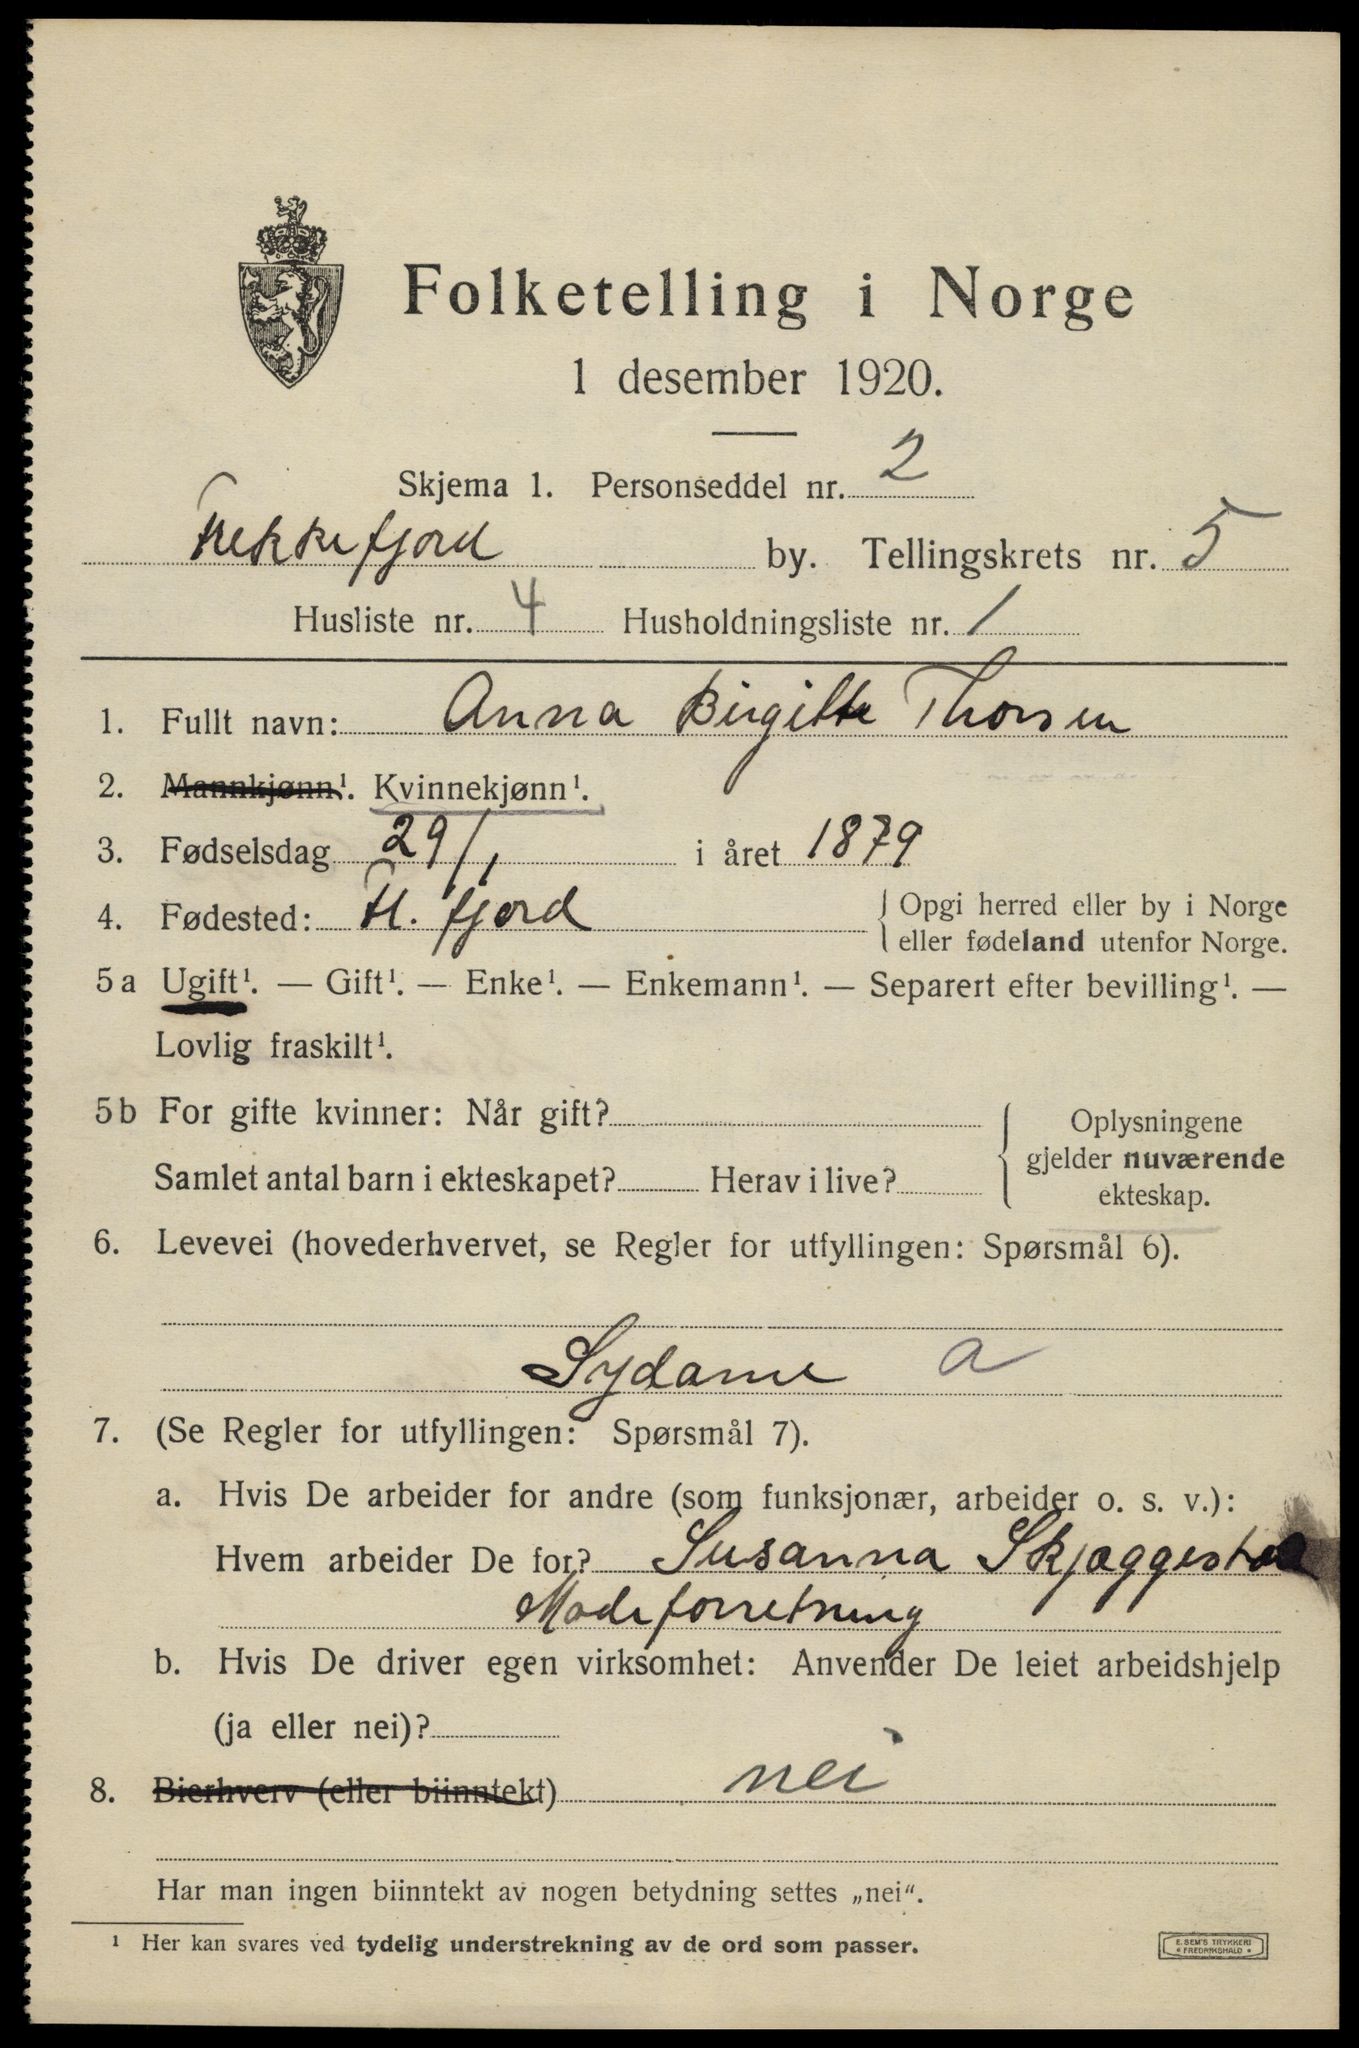 Folketelling i Norge
1 desember 1920.
Skjema 1. Personseddel nr. 2
Flekkefjord by. Tellingskrets nr. 5
Husliste nr. 4 Husholdningsliste nr. 1
1. Fullt navn: Anna Birgitte Thorsen
2. Mannkjønn¹. Kvinnekjønn¹.
3. Fødselsdag 29/1 i året 1879
4. Fødested: Fl. fjord { Opgi herred eller by i Norge
eller fødeland utenfor Norge.
5a Ugift¹. — Gift¹. — Enke¹. — Enkemann¹. — Separert efter bevilling¹. —
Lovlig fraskilt¹.
5b For gifte kvinner: Når gift? { Oplysningene
gjelder nuværende
Samlet antal barn i ekteskapet? Herav i live? ekteskap.
6. Levevei (hovederhvervet, se Regler for utfyllingen: Spørsmål 6).
Sydame a
7. (Se Regler for utfyllingen: Spørsmål 7).
a. Hvis De arbeider for andre (som funksjonær, arbeider o. s. v.):
Hvem arbeider De for? Susanna
Modeforretning
b. Hvis De driver egen virksomhet: Anvender De leiet arbeidshjelp
(ja eller nei)?
8. Bierhverv (eller biinntekt) nei
Har man ingen biinntekt av nogen betydning settes „nei“.
¹ Her kan svares ved tydelig understrekning av de ord som passer.
E. SEM'S TRYKKERI
* FREDRIKSHALD *